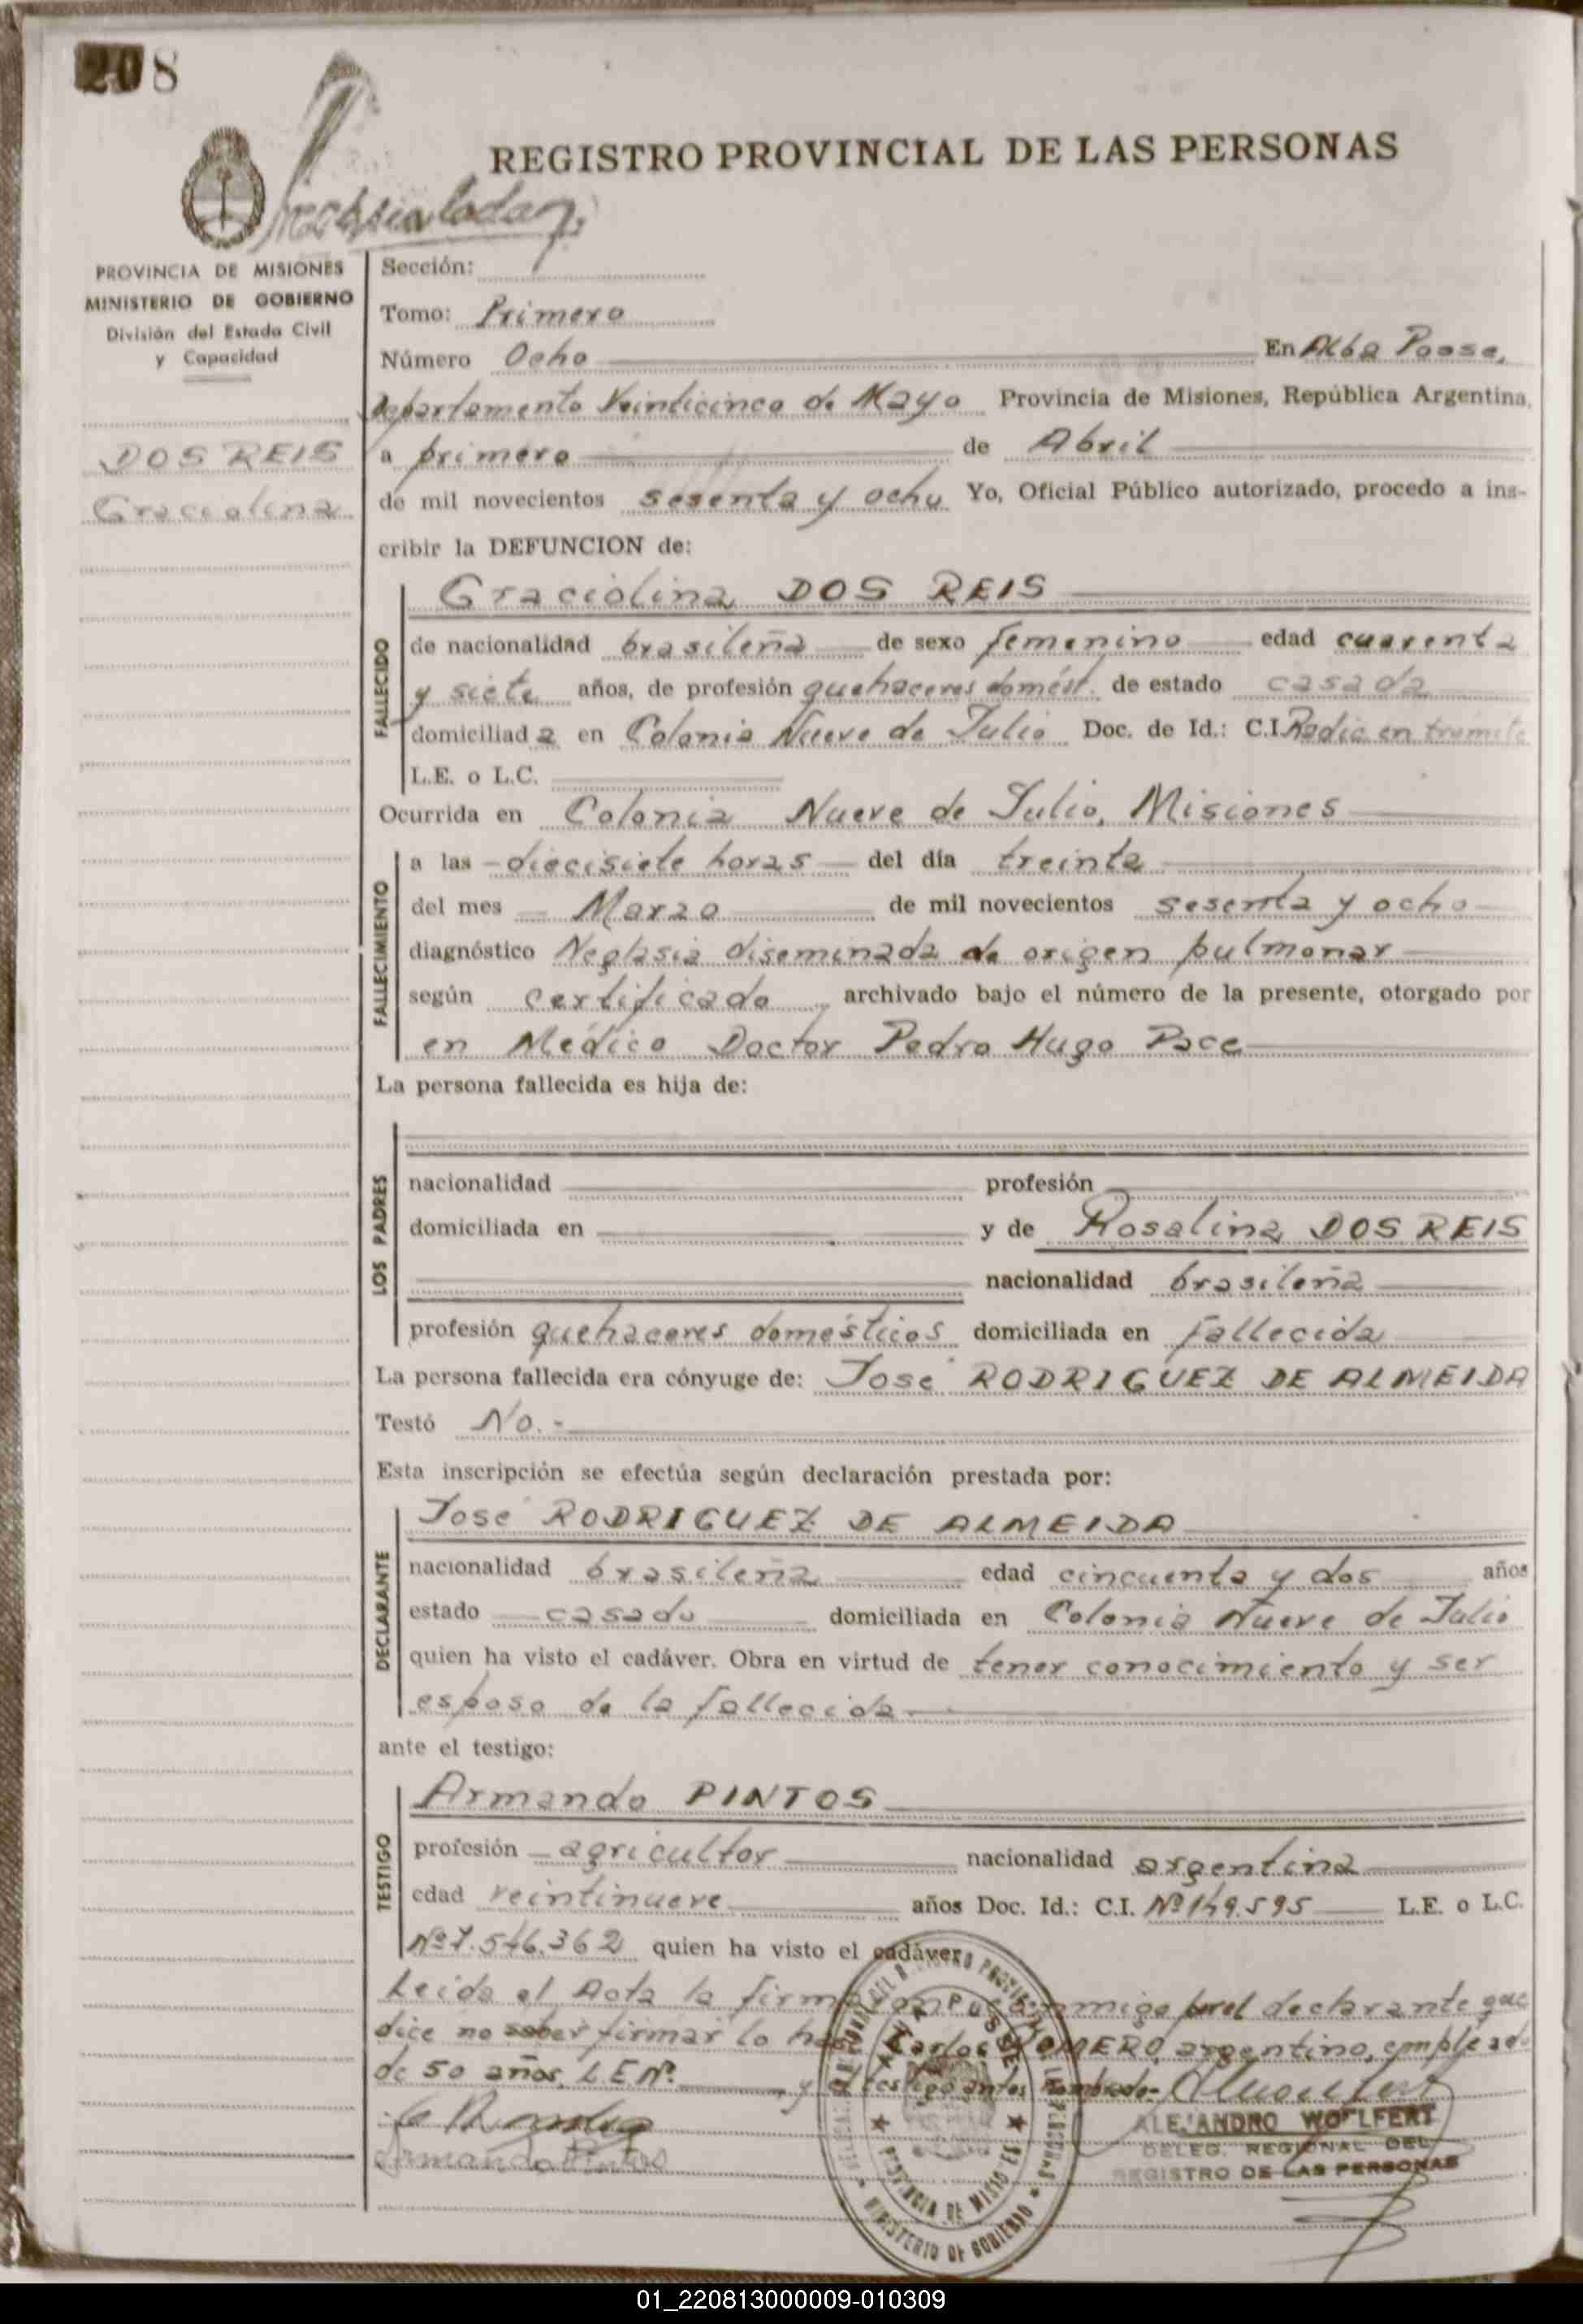 208
REGISTRO PROVINCIAL DE LAS PERSONAS
PROVINCIA DE MISIONES
MINISTERIO DE GOBIERNO
División del Estado Civil
y Capacidad
DOS REIS
Graciolina
Sección:
Tomo: Primero
Número Ocho En Alba Posse,
departamento Veinticinco de Mayo Provincia de Misiones, República Argentina,
a primero de Abril
de mil novecientos sesenta y ocho Yo, Oficial Público autorizado, procedo a ins-
cribir la DEFUNCION de:
FALLECIDO
Graciolina DOS REIS
de nacionalidad brasileña de sexo femenino edad cuarenta
y siete años, de profesión quehaceres domést. de estado casada
domiciliada en Colonia Nueve de Julio Doc. de Id.: C.I. Radic en tramite
L.E. o L.C.
Ocurrida en Colonia Nueve de Julio, Misiones
FALLECIMIENTO
a las diecisiete horas del día treinta
del mes Marzo de mil novecientos sesenta y ocho
diagnóstico Neplasia diseminada de origen pulmonar
según certificado archivado bajo el número de la presente, otorgado por
en Médico Doctor Pedro Hugo Pace
La persona fallecida es hija de:
LOS PADRES
nacionalidad profesión
domiciliada en y de Rosalina DOS REIS
nacionalidad brasileña
profesión quehaceres domésticos domiciliada en fallecida
La persona fallecida era cónyuge de: José RODRIGUEZ DE ALMEIDA
Testó No.-
Esta inscripción se efectúa según declaración prestada por:
DECLARANTE
José RODRIGUEZ DE ALMEIDA
nacionalidad brasileña edad cincuenta y dos años
estado casado domiciliada en Colonia Nueve de Julio
quien ha visto el cadáver. Obra en virtud de tener conocimiento y ser
esposo de la fallecida
ante el testigo:
TESTIGO
Armando PINTOS
profesión agricultor nacionalidad argentina
edad veintinueve años Doc. Id.: C.I. Nº149.595 L.E. o L.C.
Nº7.546.362 quien ha visto el cadáver.
Leida el Acta la firman conmigo por el declarante que
dice no saber firmar lo hace Carlos ROMERO, argentino, empleado
de 50 años, L.E.Nº. y el testigo antes nombrado-
Armando Pintos
ALEJANDRO WOLFERT
DELEG. REGIONAL DEL
REGISTRO DE LAS PERSONAS
ALBA POSSE
PROVINCIA DE MISIONES
MINISTERIO DE GOBIERNO
01_220813000009-010309